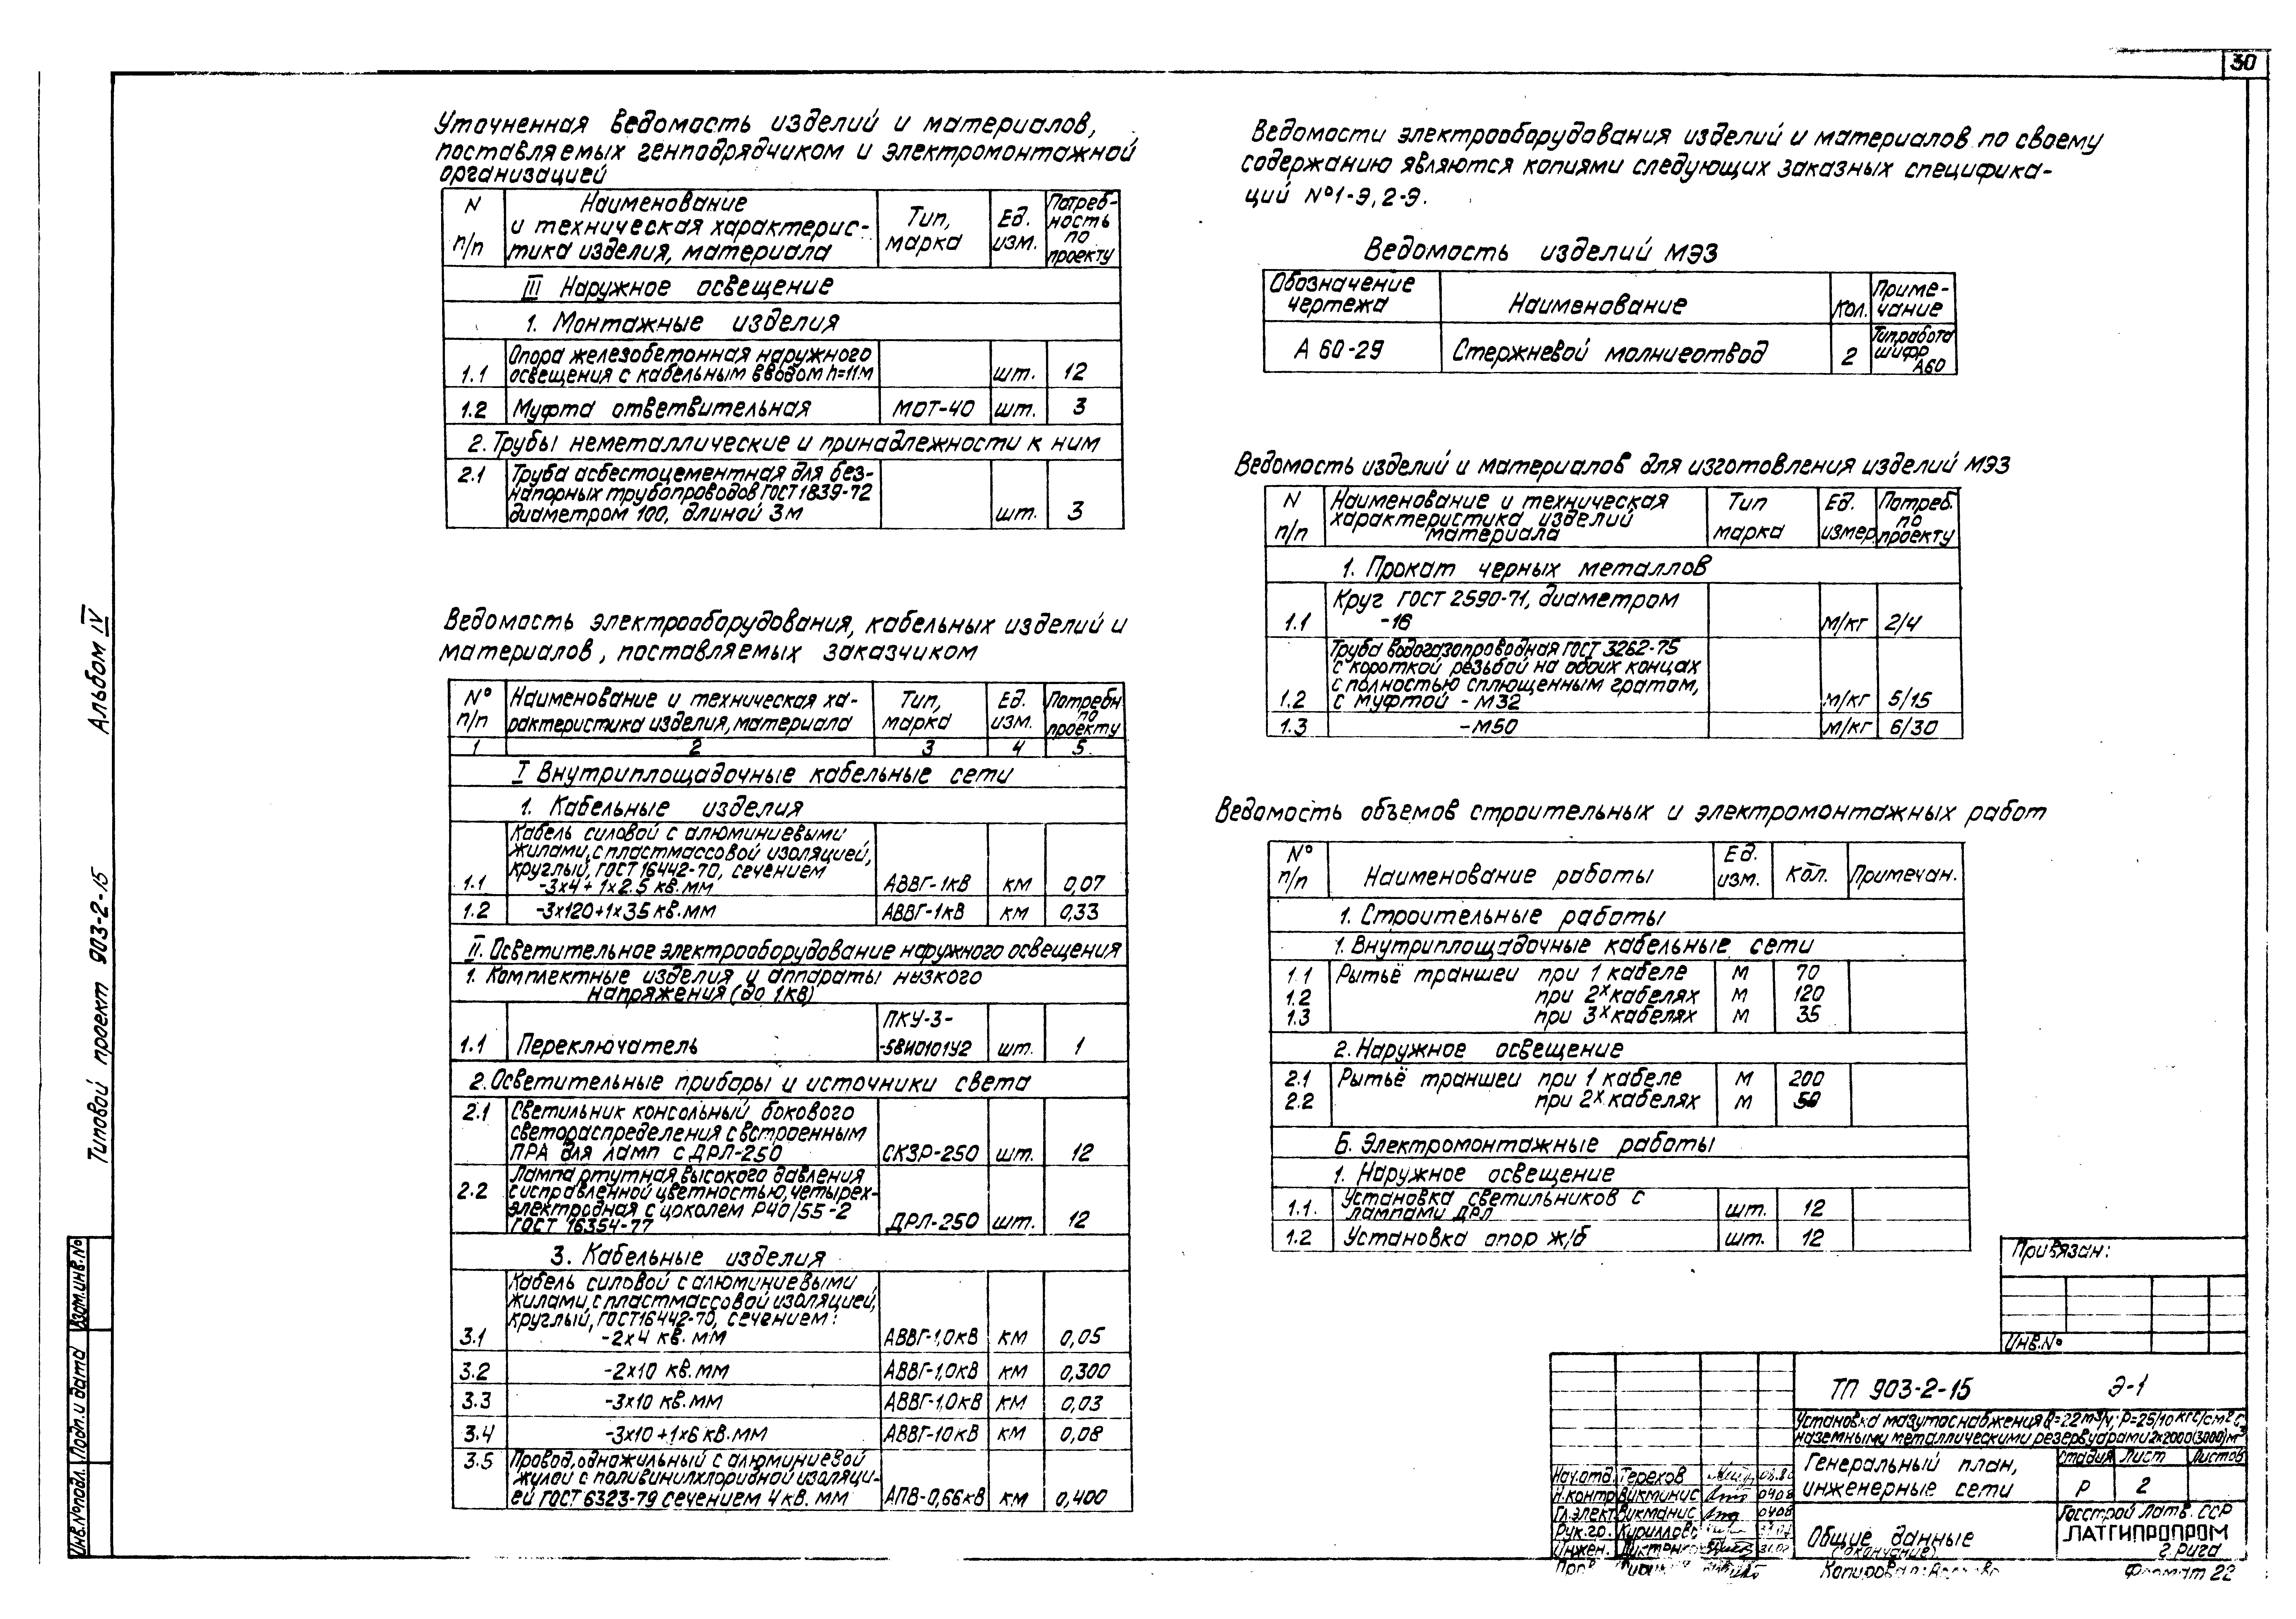 30
Уточненная ведомость изделий и материалов,
поставляемых генподрядчиком и электромонтажной
организацией
N п/п | Наименование и техническая характерис-тика изделия, материала | Тип, марка | Ед. изм. | Потреб-ность по проекту
III Наружное освещение
1. Монтажные изделия
1.1 Опора железобетонная наружного
освещения с кабельным вводом h=11м шт. 12
1.2 Муфта ответвительная МОТ-40 шт. 3
2. Трубы неметаллические и принадлежности к ним
2.1 Труба асбестоцементная для без-
напорных трубопроводов ГОСТ 1839-72
диаметром 100, длиной 3м шт. 3
Ведомость электрооборудования, кабельных изделий и
материалов, поставляемых заказчиком
N° п/п | Наименование и техническая ха-рактеристика изделия, материала | Тип, марка | Ед. изм. | Потребн по проекту
1 2 3 4 5
I Внутриплощадочные кабельные сети
1. Кабельные изделия
Кабель силовой с алюминиевыми
жилами, с пластмассовой изоляцией,
круглый, ГОСТ 16442-70, сечением
1.1 -3х4+1х2.5 кв.мм АВВГ-1кВ км 0,07
1.2 -3х120+1х35 кв.мм АВВГ-1кВ км 0,33
II. Осветительное электрооборудование наружного освещения
1. Комплектные изделия и аппараты низкого
напряжения (до 1кв)
ПКУ-3-
1.1 Переключатель -58И0101У2 шт. 1
2. Осветительные приборы и источники света
2.1 Светильник консольный бокового
светораспределения с встроенным
ПРА для ламп с ДРЛ-250 СКЗР-250 шт. 12
Лампа ртутная высокого давления
2.2 с исправленной цветностью, четырех-
электродная с цоколем Р40/55-2
ГОСТ 16354-77 ДРЛ-250 шт. 12
3. Кабельные изделия
Кабель силовой с алюминиевыми
жилами, с пластмассовой изоляцией,
круглый, ГОСТ 16442-70, сечением:
3.1 -2х4 кв.мм АВВГ-1,0кВ км 0,05
3.2 -2х10 кв.мм АВВГ-1,0кВ км 0,300
3.3 -3х10 кв.мм АВВГ-1,0кВ км 0,03
3.4 -3х10+1х6 кв.мм АВВГ-10кВ км 0,08
3.5 Провод, одножильный с алюминиевой
жилой с поливинилхлоридной изоляци-
ей ГОСТ 6323-79 сечением 4 кв. мм АПВ-0,66кВ км 0,400
Ведомости электрооборудования изделий и материалов по своему
содержанию являются копиями следующих заказных специфика-
ций N°1-Э, 2-Э.
Ведомость изделий МЭЗ
Обозначение чертежа | Наименование | Кол. | Приме-чание
А 60-29 Стержневой молниеотвод 2 Тип.работа шифр А60
Ведомость изделий и материалов для изготовления изделий МЭЗ
N п/п | Наименование и техническая характеристика изделий материала | Тип марка | Ед. измер. | Потреб. по проекту
1. Прокат черных металлов
Круг ГОСТ 2590-71, диаметром
1.1 -16 м/кг 2/4
Труба водогазопроводная ГОСТ 3262-75
с короткой резьбой на обоих концах
с полностью сплющенным гратом,
1.2 с муфтой - М32 м/кг 5/15
1.3 -М50 м/кг 6/30
Ведомость объемов строительных и электромонтажных работ
N° п/п | Наименование работы | Ед. изм. | Кол. | Примечан.
1. Строительные работы
1. Внутриплощадочные кабельные сети
1.1 Рытьё траншеи при 1 кабеле м 70
1.2 при 2х кабелях м 120
1.3 при 3х кабелях м 35
2. Наружное освещение
2.1 Рытьё траншеи при 1 кабеле м 200
2.2 при 2х кабелях м 50
Б. Электромонтажные работы
1. Наружное освещение
1.1. Установка светильников с
лампами ДРЛ шт. 12
1.2 Установка опор ж/б шт. 12
Привязан:
Инв.N°
ТП 903-2-15 Э-1
Установка мазутоснабжения Q=22м³/ч, Р=25/10 кгс/см² с
наземными металлическими резервуарами 2х2000(3000)м³
Генеральный план,
инженерные сети
Стадия Лист Листов
Р 2
Общие данные
(окончание)
Госстрой Латв. ССР
ЛАТГИПРОПРОМ
г. Рига
Нач.отд. Терехов
Н.контр Викманис 0408
Гл.элект Викманис 0408
Рук.гр.
Инжен.
Формат 22
Типовой проект 903-2-15 Альбом IV
Взам.инв.N°
Подп. и дата
Инв.N°подл.